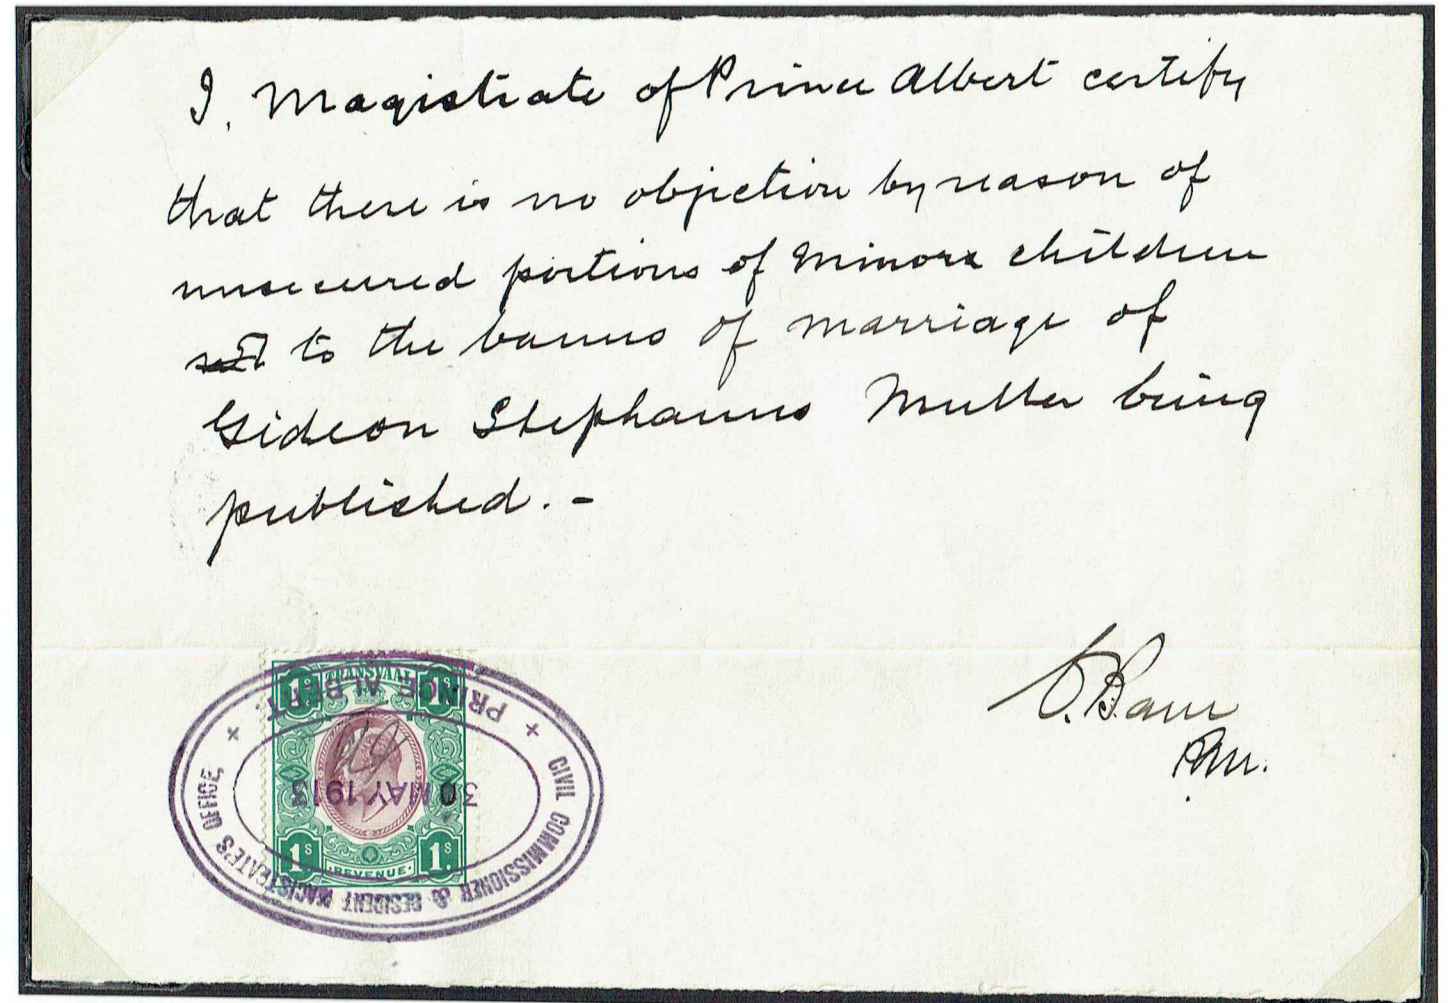 I, Magistrate of Prince Albert certify
that there is no objection by reason of
unsecured portions of minors children
to the banns of marriage of
Gideon Stephanus Muller being
published. -
R.M.
TRANSVAAL
1s 1s
1s 1s
REVENUE
CIVIL COMMISSIONER & RESIDENT MAGISTRATE'S OFFICE,
+ PRINCE ALBERT. +
30 MAY 1913